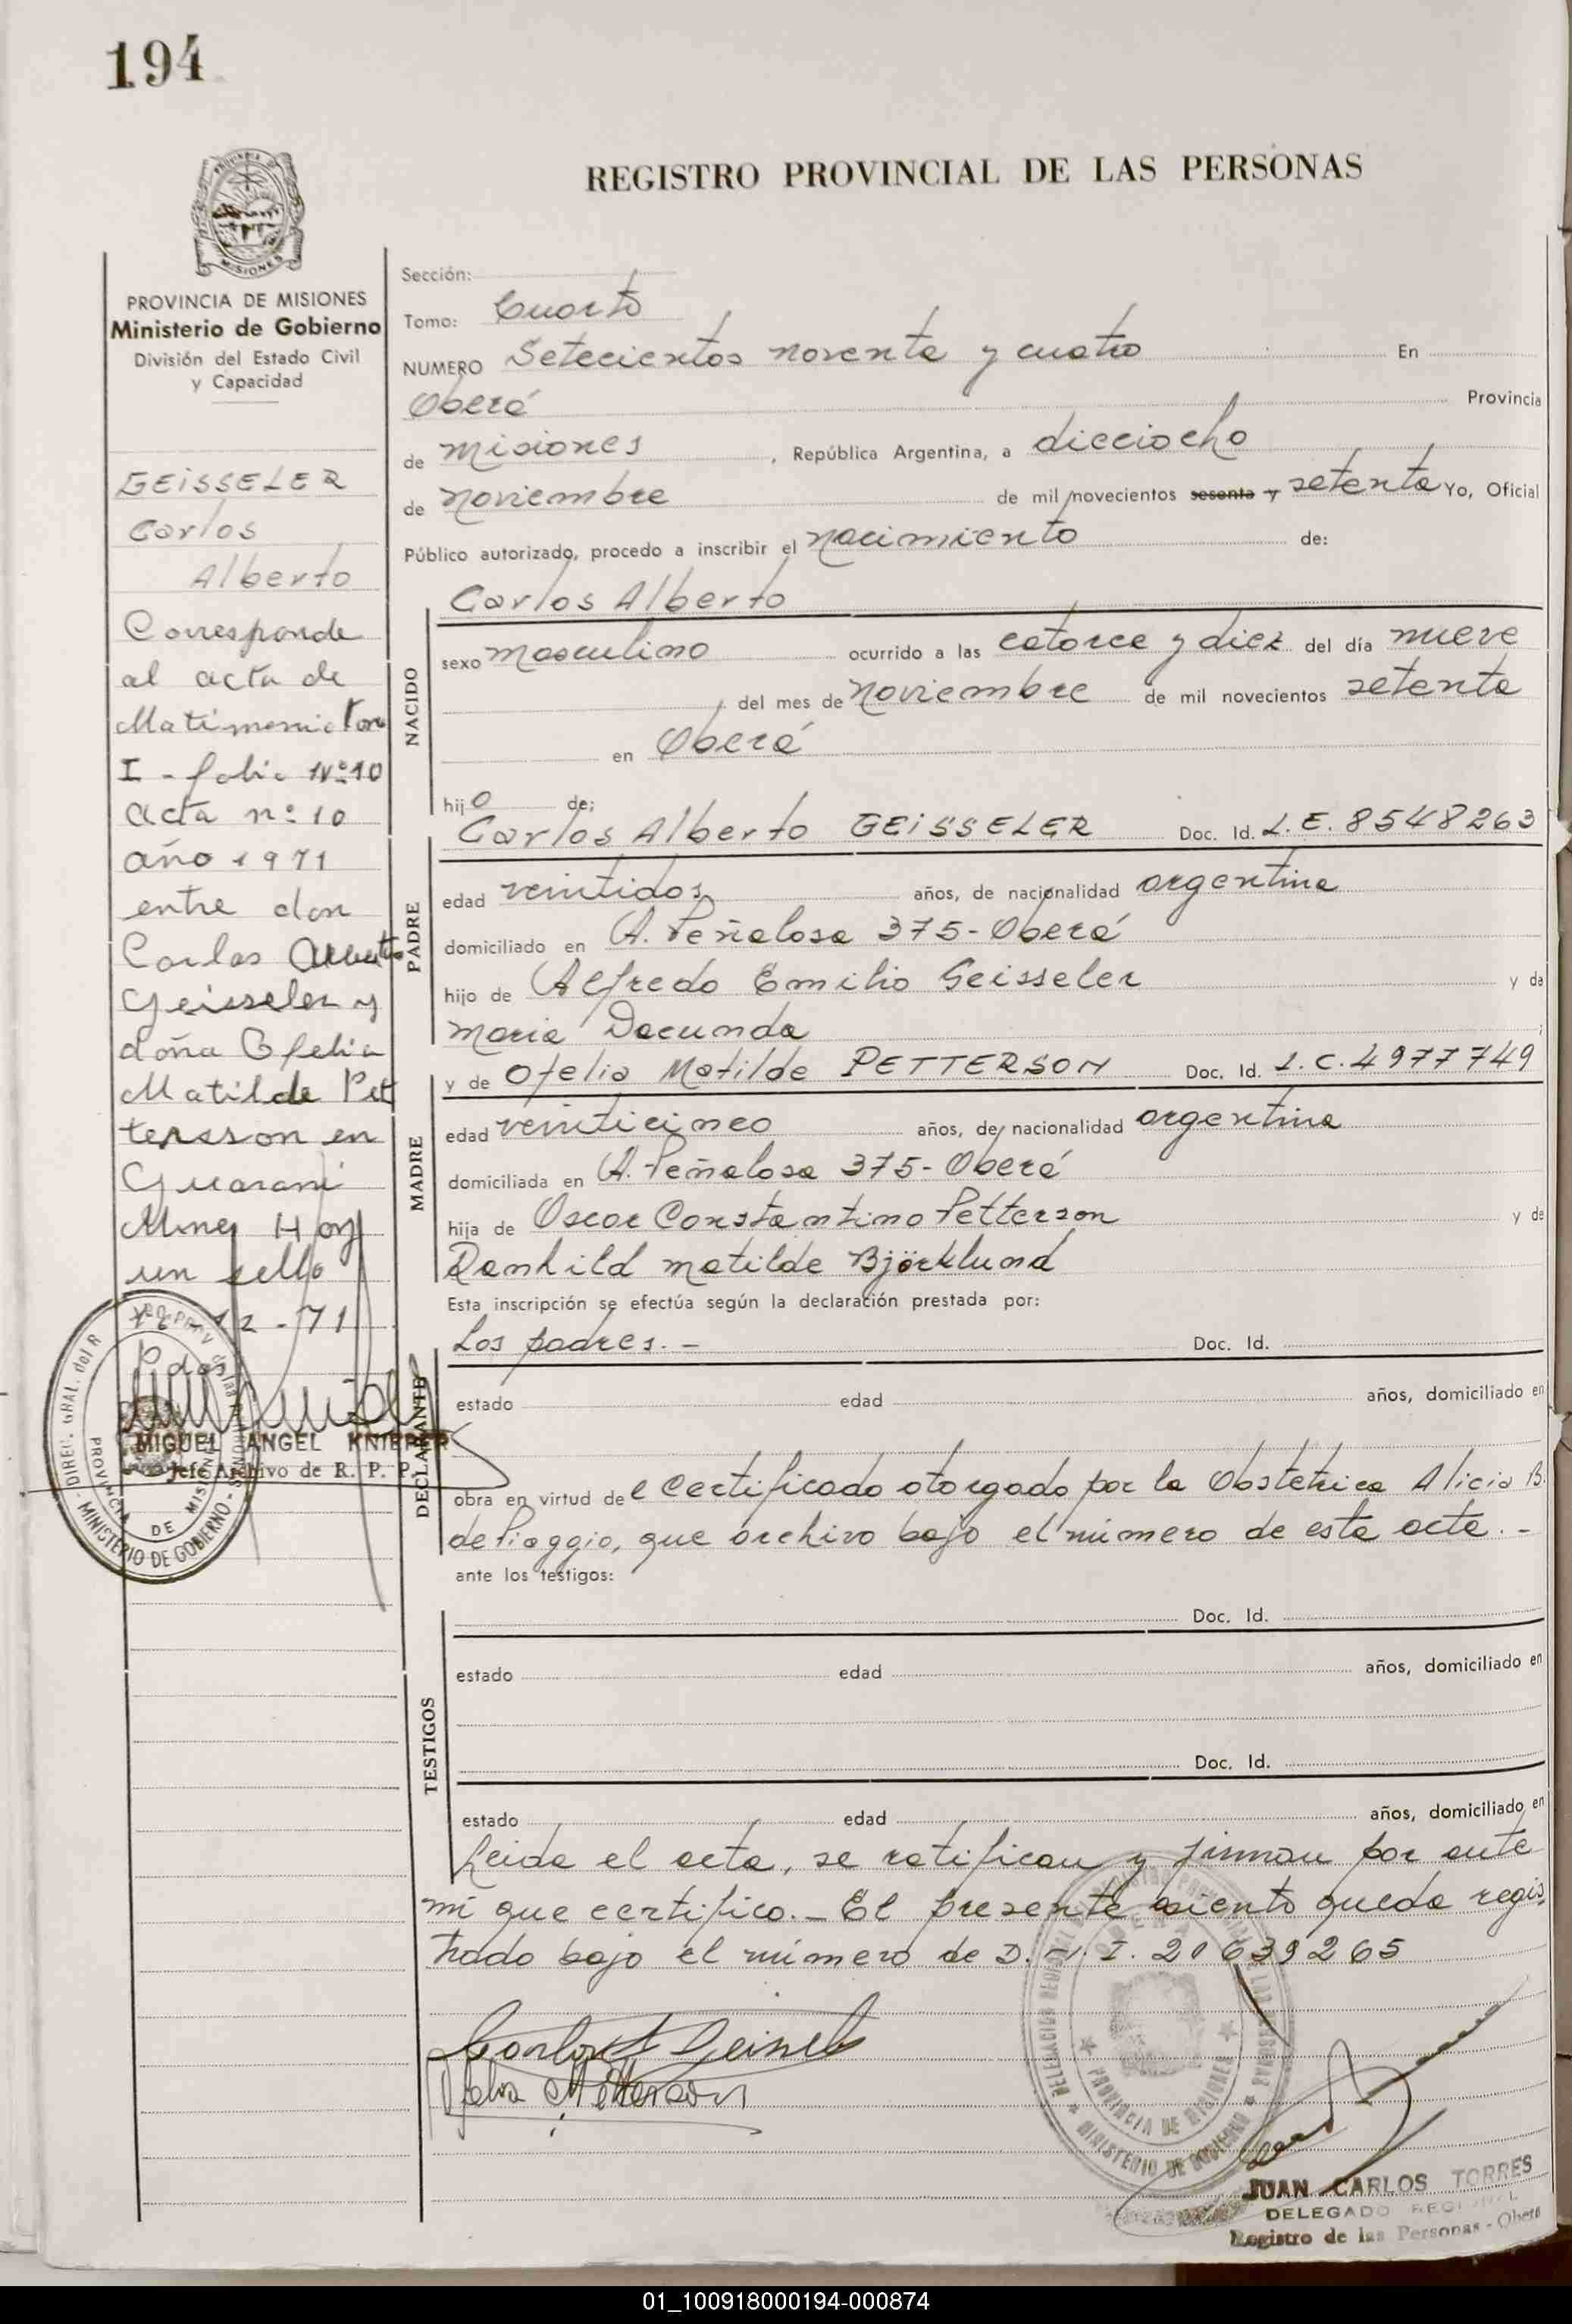 194
REGISTRO PROVINCIAL DE LAS PERSONAS
MISIONES
PROVINCIA DE MISIONES
Ministerio de Gobierno
División del Estado Civil
y Capacidad
GEISSELER
Carlos
Alberto
Corresponde
al acta de
Matrimonio Tom
I - folio Nº 10
acta nº 10
año 1971
entre don
Carlos Alberto
Geisseler y
doña Ofelia
Matilde Pet
tersson en
Guaraní
Mnes Hay
un sello
-12-71
MIGUEL ANGEL KNIEPER
Jefe Archivo de R. P. P.
DIREC. GRAL. del R
MINISTERIO DE GOBIERNO
PROVINCIA DE MISIONES
Sección:
Tomo: Cuarto
NUMERO Setecientos noventa y cuatro En
Oberá Provincia
de Misiones, República Argentina, a dieciocho
de noviembre de mil novecientos sesenta y setenta Yo, Oficial
Público autorizado, procedo a inscribir el nacimiento de:
Carlos Alberto
NACIDO
sexo masculino ocurrido a las catorce y diez del día nueve
del mes de noviembre de mil novecientos setenta
en Oberá
hijo de;
Carlos Alberto GEISSELER Doc. Id. L.E. 8548263
PADRE
edad veintidos años, de nacionalidad argentina
domiciliado en A. Peñalosa 375 - Oberá
hijo de Alfredo Emilio Geisseler y de
Maria Dacunda;
y de Ofelia Matilde PETTERSON Doc. Id. L.C. 4977749
MADRE
edad veinticinco años, de nacionalidad argentina
domiciliada en A. Peñalosa 375 - Oberá
hija de Oscar Constantino Petterson y de
Ranhild Matilde Björklund
Esta inscripción se efectúa según la declaración prestada por:
Los padres. - Doc. Id.
DECLARANTE
estado edad años, domiciliado en
obra en virtud de el certificado otorgado por la Obstetrica Alicia B.
de Piaggio, que archivo bajo el número de esta acta. -
ante los testigos:
Doc. Id.
TESTIGOS
estado edad años, domiciliado en
Doc. Id.
estado edad años, domiciliado en
Leida el acta, se ratifican y firman por ante
mí que certifico. - El presente asiento queda regis
trado bajo el número de D.N.I. 20639265
PROVINCIA DE MISIONES
MINISTERIO DE GOBIERNO
JUAN CARLOS TORRES
DELEGADO REGIONAL
Registro de las Personas - Oberá
01_100918000194-000874